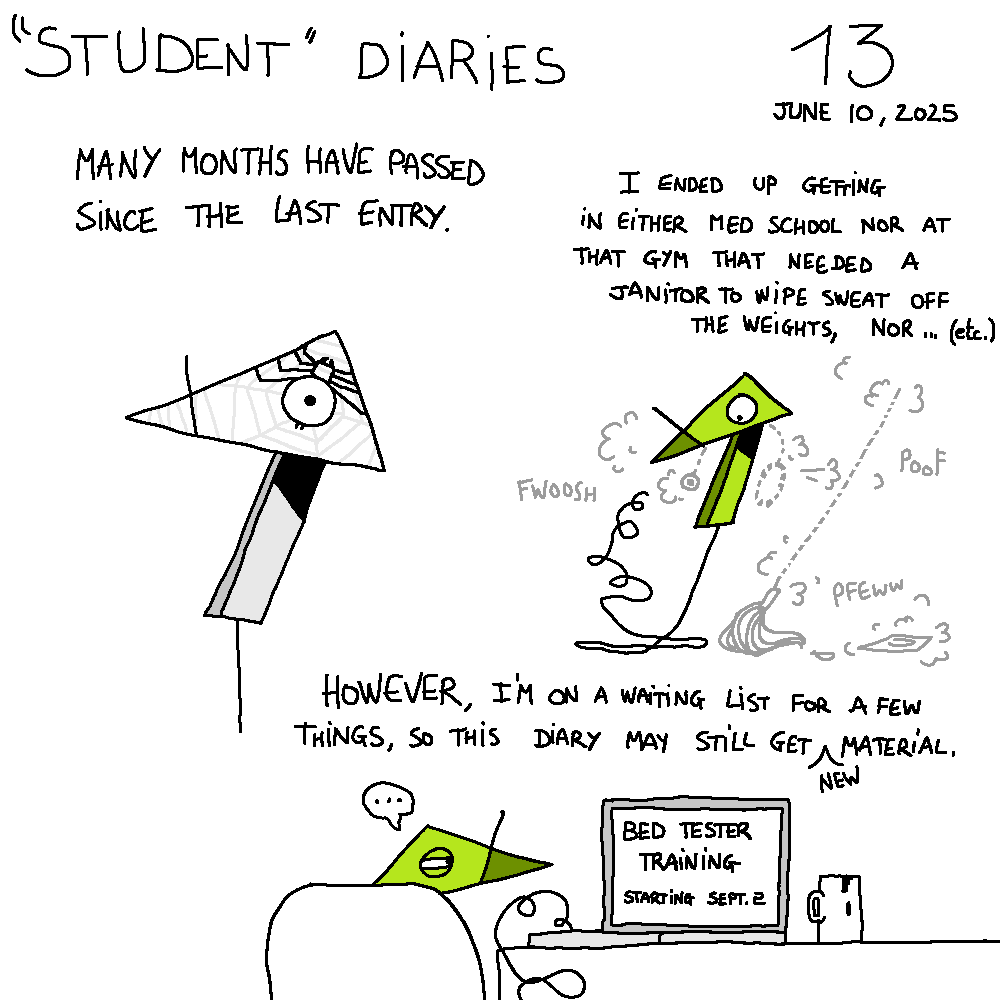 "STUDENT" DIARIES
13
JUNE 10, 2025
MANY MONTHS HAVE PASSED
SINCE THE LAST ENTRY.
I ENDED UP GETTING
IN EITHER MED SCHOOL NOR AT
THAT GYM THAT NEEDED A
JANITOR TO WIPE SWEAT OFF
THE WEIGHTS, NOR ... (etc.)
FWOOSH
POOF
PFEWW
HOWEVER, I'M ON A WAITING LIST FOR A FEW
THINGS, SO THIS DIARY MAY STILL GET MATERIAL.
NEW
...
BED TESTER
TRAINING
STARTING SEPT. 2